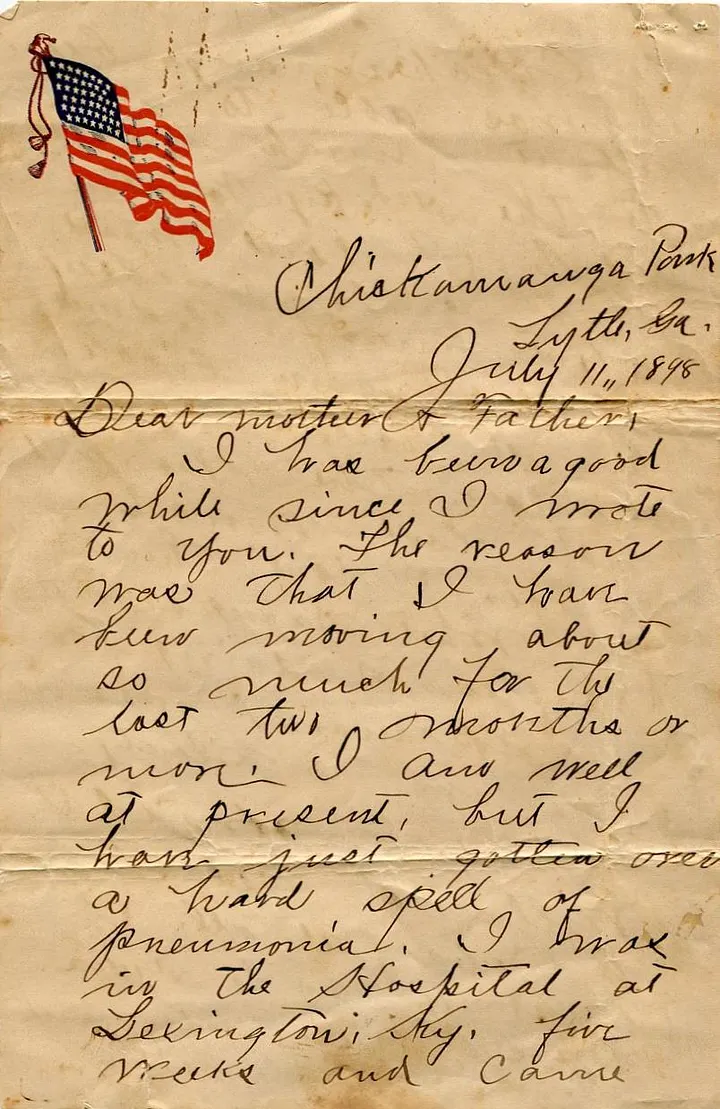 Chickamauga Park
Lytle, Ga.
July 11,, 1898
Dear mother & Father,
I has been a good
while since I wrote
to you. The reason
was that I have
been moving about
so much for the
last two months or
more. I am well
at present, but I
have just gotten over
a hard spell of
pneumonia. I was
in the Hospital at
Lexington, Ky. five
weeks and came